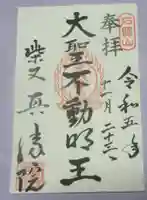 奉拝
令和五年
十一月二十三
大聖不動明王
柴又真勝院